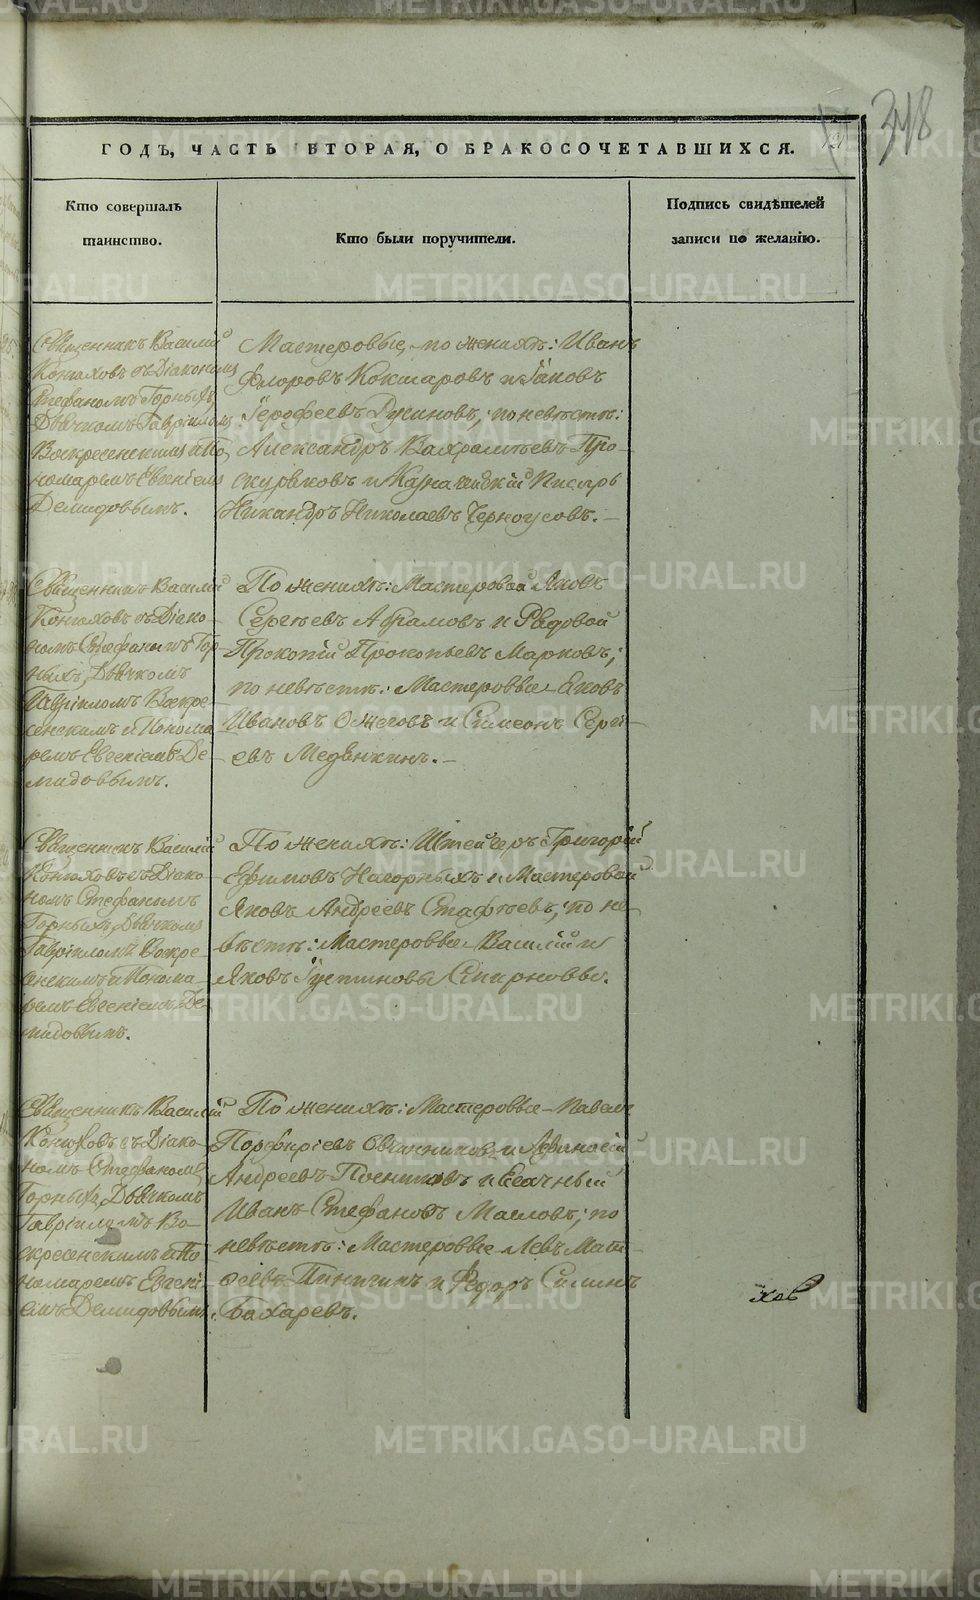 348
121
ГОДЪ, ЧАСТЬ ВТОРАЯ, О БРАКОСОЧЕТАВШИХСЯ.
Кто совершалъ
таинство.
Кто были поручители.
Подпись свидѣтелей
записи по желанію.
Священникъ Василій
Конюховъ съ Діакономъ
Стефаномъ Горныхъ,
Дьячкомъ Гавріиломъ
Воскресенскимъ и По-
номаремъ Евгеніемъ
Демидовымъ.
Мастеровые, по женихѣ: Иванъ
Флоровъ Кокшаровъ и Іаковъ
Іерофеевъ; по невѣстѣ:
Александръ Вахрамѣевъ Про-
скуряковъ и Писарь
Никандръ Николаевъ Черноусовъ.
Священникъ Василій
Конюховъ съ Діако-
номъ Стефаномъ Гор-
ныхъ, Дьячкомъ
Гавріиломъ Воскре-
сенскимъ и Понома-
ремъ Евгеніемъ Де-
мидовымъ.
По женихѣ: Мастеровой Яковъ
Сергѣевъ Абрамовъ и Рядовой
Прокопій Прокопьевъ Марковъ;
по невѣстѣ: Мастеровые Яковъ
Ивановъ Ожеговъ и Симеонъ Сергѣ-
евъ Медвѣкинъ.
Священникъ Василій
Конюховъ съ Діако-
номъ Стефаномъ
Горныхъ, Дьячкомъ
Гавріиломъ Воскре-
сенскимъ и Понома-
ремъ Евгеніемъ Де-
мидовымъ.
По женихѣ: Штейгеръ Григорій
Ефимовъ Нагорныхъ и Мастеровой
Яковъ Андреевъ Стафѣевъ; по не-
вѣстѣ: Мастеровые Василій и
Яковъ Іустиновы Смирновы.
Священникъ Василій
Конюховъ съ Діако-
номъ Стефаномъ
Горныхъ, Дьячкомъ
Гавріиломъ Во-
скресенскимъ и По-
номаремъ Евгені-
емъ Демидовымъ.
По женихѣ: Мастеровые Павелъ
Порфиріевъ Овчинниковъ и Афанасій
Андреевъ и
Иванъ Стефановъ Масловъ; по
невѣстѣ: Мастеровые Левъ Мат-
ѳеевъ Пинигинъ и Федоръ Силинъ
Бахаревъ.
ховъ
METRIKI.GASO-URAL.RU